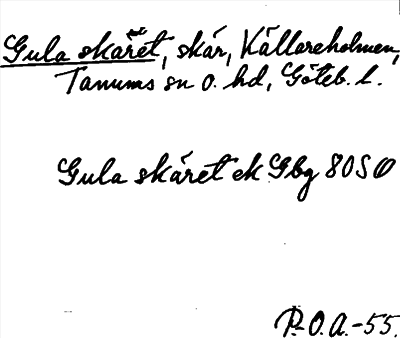 Gula skäret, skär, Källareholmen,
Tanums sn o. hd, Göteb. l.
Gula skäret ek Gbg 80SO
P.O.A.-55.